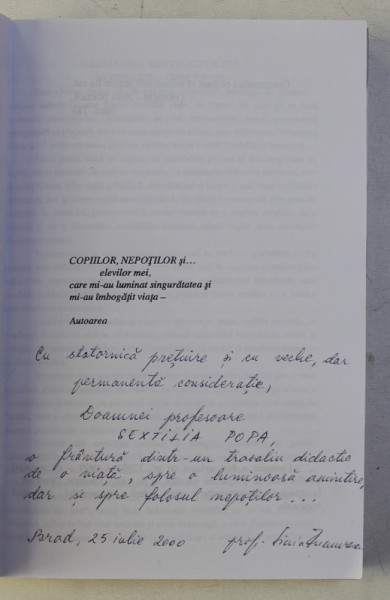 COPIILOR, NEPOŢILOR şi…
elevilor mei,
care mi-au luminat singurătatea şi
mi-au îmbogăţit viaţa –
Autoarea
Cu statornică prețuire și cu veche, dar
permanentă considerație,
Doamnei profesoare
SEXTISIA POPA,
o frântură dintr-un travaliu didactic
de o viață, spre o luminoasă amintire,
dar și spre folosul nepoților ...
Brad, 25 iulie 2000 prof.